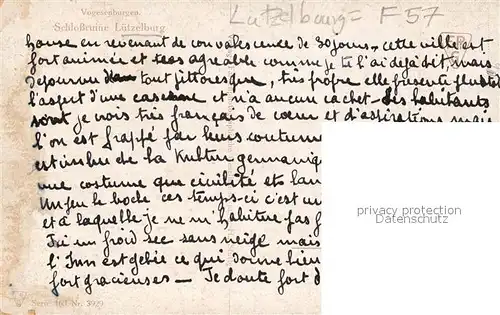 Vogesenburgen.
Schloßruine Lützelburg
Lutzelbourg = F 57
house en revenant de convalescence de 30 jours - cette ville est
fort animée et très agréable comme je te l'ai déjà dit, mais
dépourvu tout pittoresque, très propre elle présente plutôt
l'aspect d'une caserne et n'a aucun cachet - Les habitants
sont je vois très français de cœur et d'aspirations mais
l'on est frappé par leurs coutume
est imbu de la Kultur germaniq
une costume que civilité et lan
Un peu le boche ces temps-ci c'est un
et à laquelle je ne m'habitue pas
J'ai un froid sec sans neige mais
l' est gelée ce qui donne lieu
fort gracieuses - Je doute fort d
Serie 163 Nr. 3929
privacy protection
www.oldthing.de